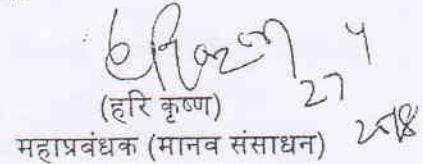 27
4
2018
(हरि कृष्ण)
महाप्रबंधक (मानव संसाधन)